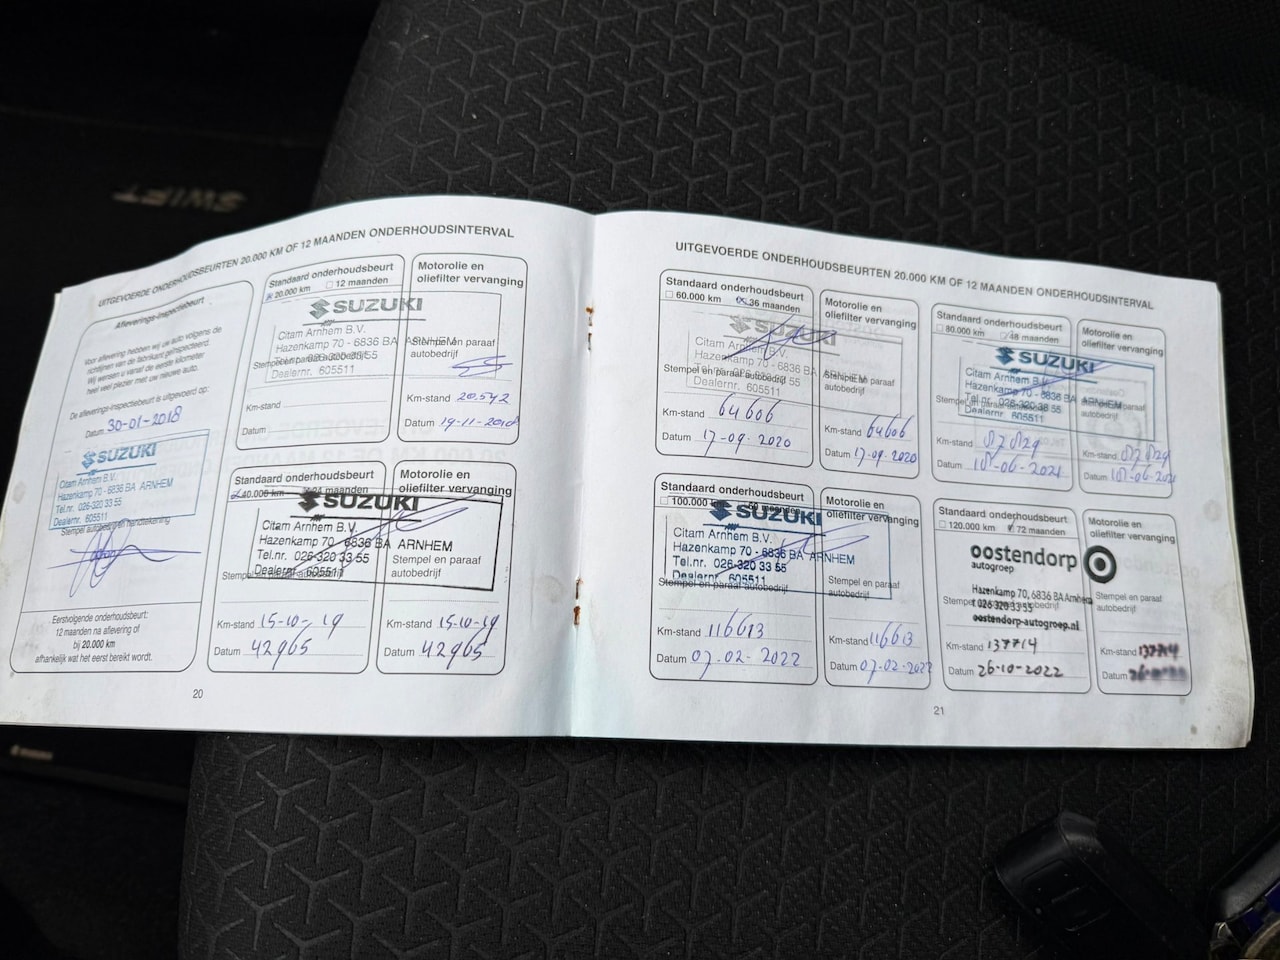 SWIFT
UITGEVOERDE ONDERHOUDSBEURTEN 20.000 KM OF 12 MAANDEN ONDERHOUDSINTERVAL
Afleverings-inspectiebeurt
Voor aflevering hebben wij uw auto volgens de
richtlijnen van de fabrikant geïnspecteerd.
Wij wensen u vanaf de eerste kilometer
heel veel plezier met uw nieuwe auto.
De afleverings-inspectiebeurt is uitgevoerd op:
Datum 30-01-2018
SUZUKI
Citam Arnhem B.V.
Hazenkamp 70 - 6836 BA ARNHEM
Tel.nr. 026-320 33 55
Dealernr. 605511
Stempel autobedrijf en handtekening
Eerstvolgende onderhoudsbeurt:
12 maanden na aflevering of
bij 20.000 km
afhankelijk wat het eerst bereikt wordt.
Standaard onderhoudsbeurt
20.000 km 12 maanden
SUZUKI
Citam Arnhem B.V.
Hazenkamp 70 - 6836 BA ARNHEM
Tel.nr. 026-320 33 55
Dealernr. 605511
Km-stand
Datum
Motorolie en
oliefilter vervanging
Stempel en paraaf
autobedrijf
Km-stand 20.542
Datum 19-11-2018
Standaard onderhoudsbeurt
40.000 km 24 maanden
SUZUKI
Citam Arnhem B.V.
Hazenkamp 70 - 6836 BA ARNHEM
Tel.nr. 026-320 33 55
Dealernr. 605511
Stempel en paraaf autobedrijf
Km-stand 15-10-19
Datum 42965
Motorolie en
oliefilter vervanging
Stempel en paraaf
autobedrijf
Km-stand 15-10-19
Datum 42965
20
UITGEVOERDE ONDERHOUDSBEURTEN 20.000 KM OF 12 MAANDEN ONDERHOUDSINTERVAL
Standaard onderhoudsbeurt
60.000 km 36 maanden
SUZUKI
Citam Arnhem B.V.
Hazenkamp 70 - 6836 BA ARNHEM
Tel.nr. 026-320 33 55
Dealernr. 605511
Stempel en paraaf autobedrijf
Km-stand 64606
Datum 17-09-2020
Motorolie en
oliefilter vervanging
Stempel en paraaf
autobedrijf
Km-stand 64606
Datum 17-09-2020
Standaard onderhoudsbeurt
80.000 km 48 maanden
SUZUKI
Citam Arnhem B.V.
Hazenkamp 70 - 6836 BA ARNHEM
Tel.nr. 026-320 33 55
Dealernr. 605511
Km-stand
Datum
Motorolie en
oliefilter vervanging
Km-stand
Datum
Standaard onderhoudsbeurt
100.000 km 60 maanden
SUZUKI
Citam Arnhem B.V.
Hazenkamp 70 - 6836 BA ARNHEM
Tel.nr. 026-320 33 55
Dealernr. 605511
Stempel en paraaf autobedrijf
Km-stand 116613
Datum 07-02-2022
Motorolie en
oliefilter vervanging
Stempel en paraaf
autobedrijf
Km-stand 116613
Datum 07-02-2022
Standaard onderhoudsbeurt
120.000 km 72 maanden
oostendorp
autogroep
Hazenkamp 70, 6836 BA Arnhem
t 026 320 33 55
oostendorp-autogroep.nl
Km-stand 137714
Datum 26-10-2022
Motorolie en
oliefilter vervanging
Stempel en paraaf
autobedrijf
Km-stand 137714
Datum
21